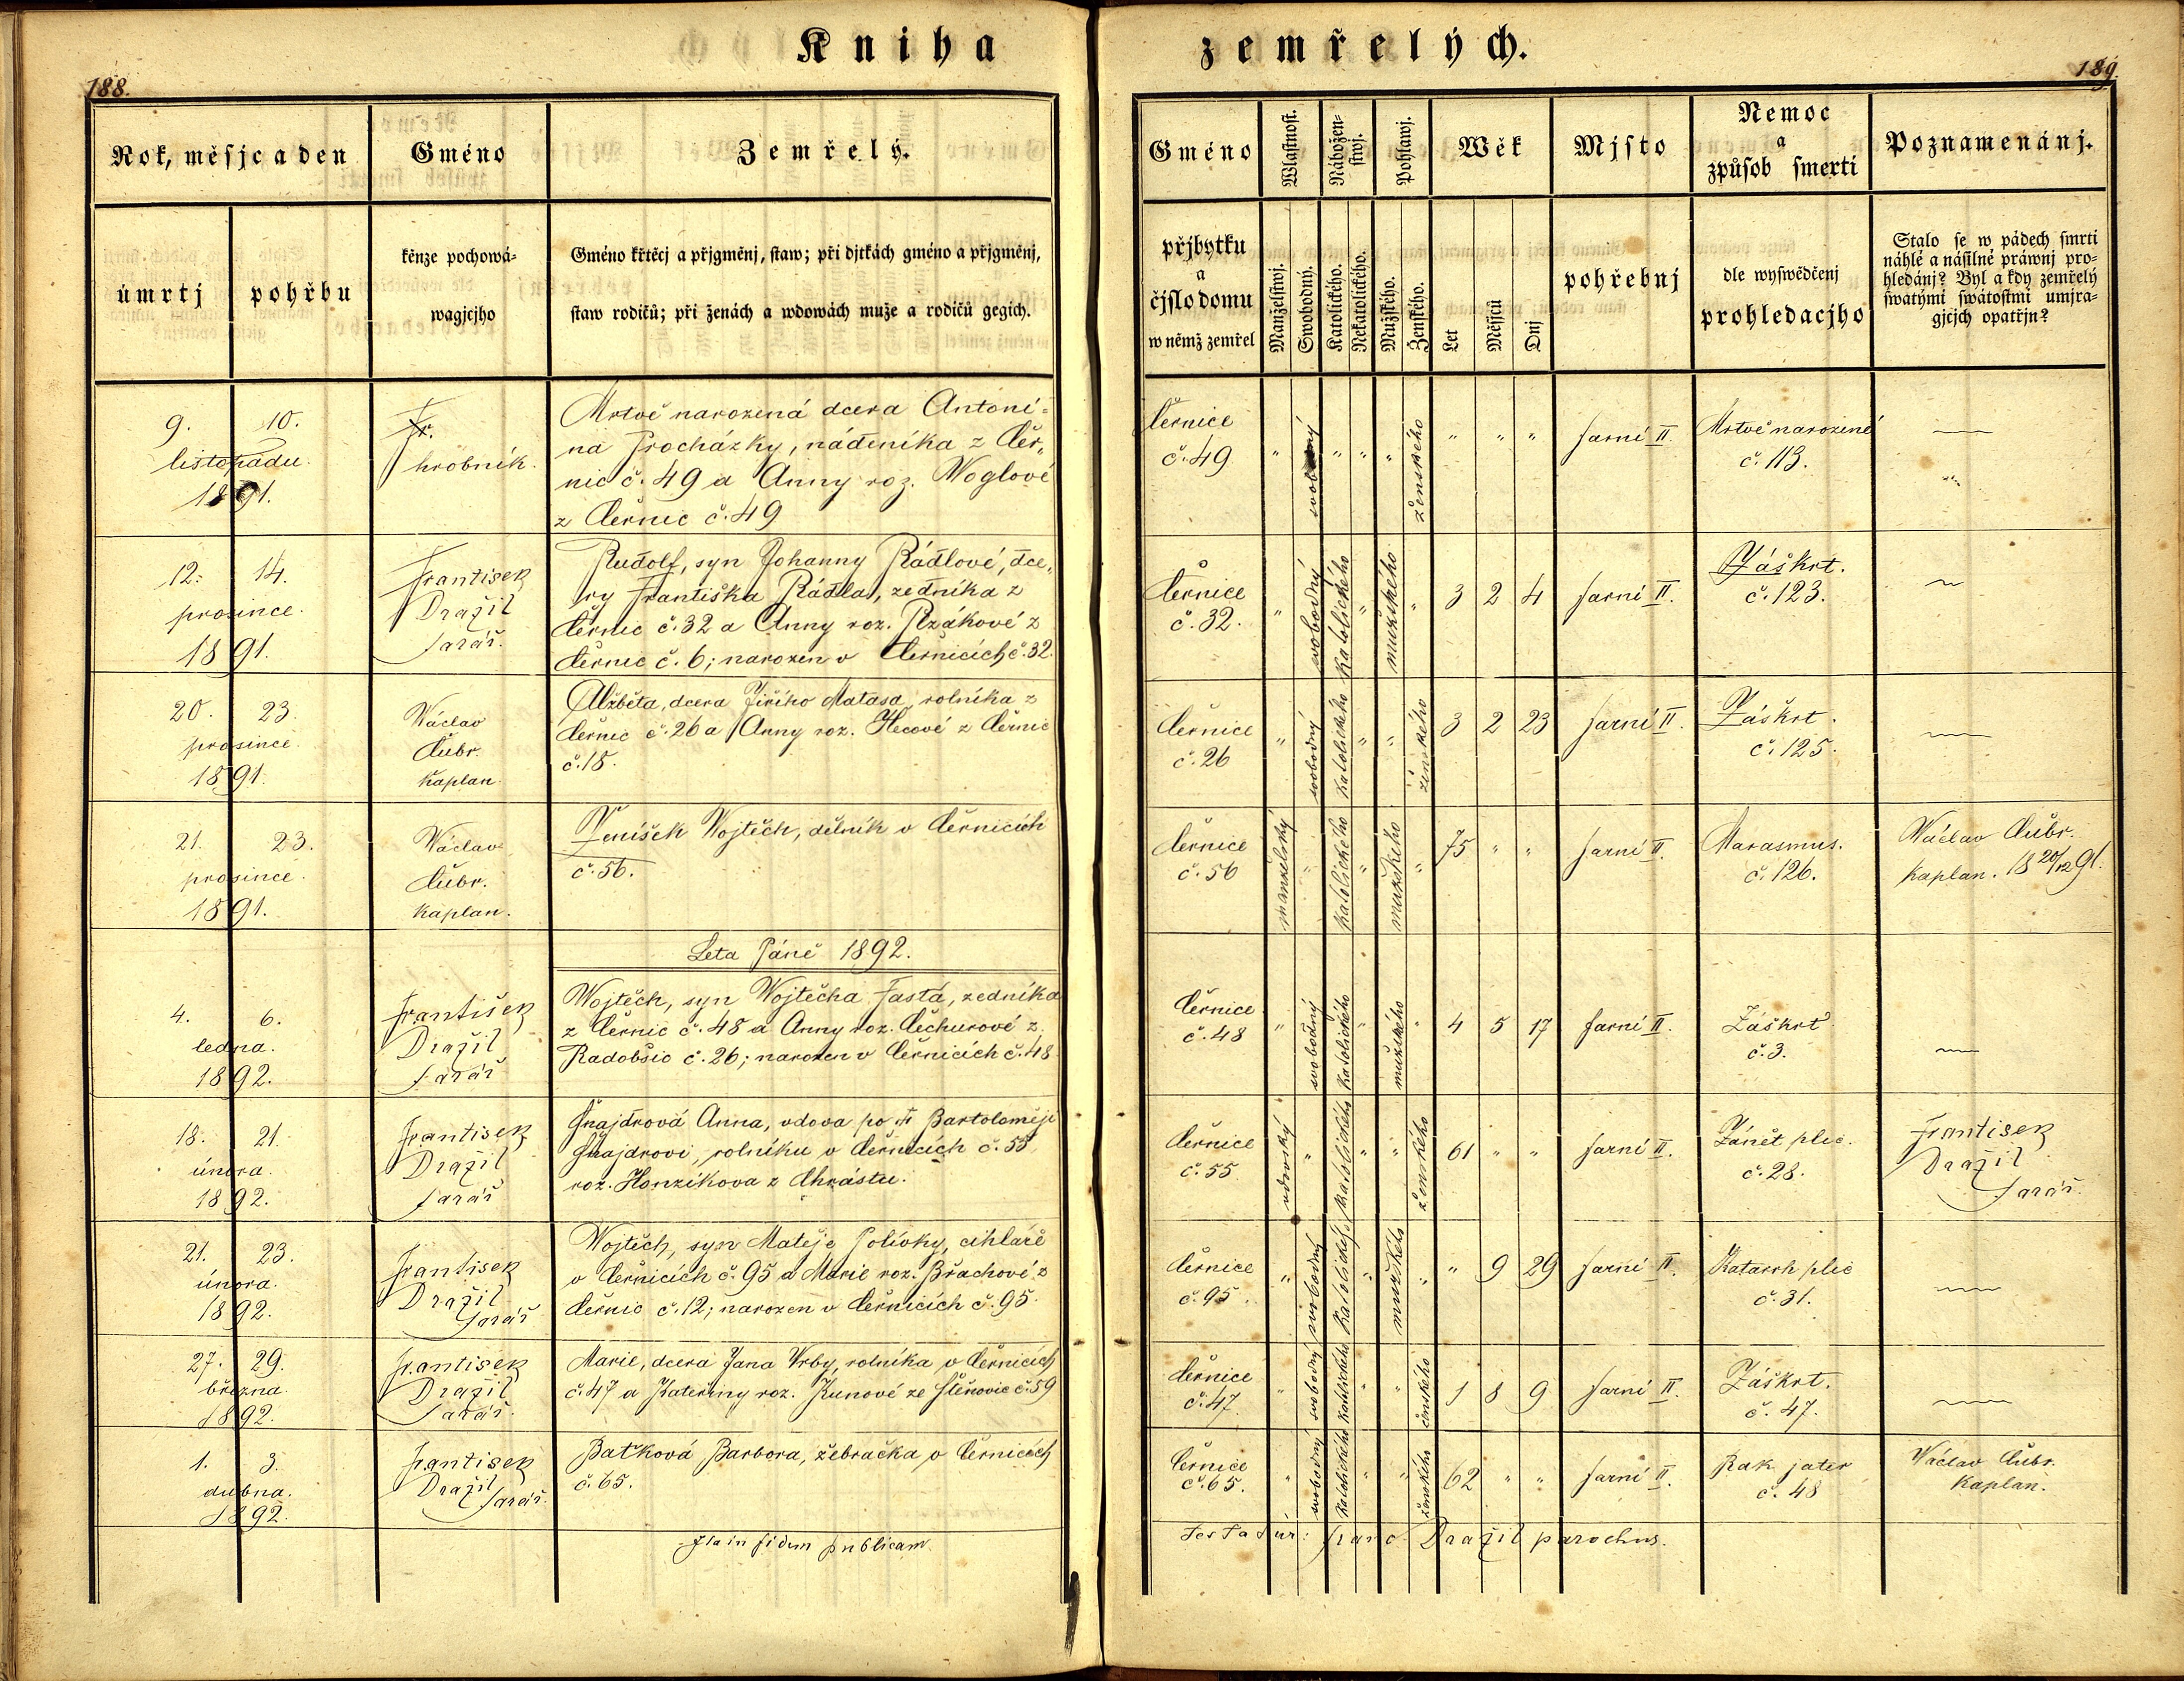 Kniha zemřelých.
188.
189.
Rok, měsjc a den
Gméno
Zemřelý.
úmrtj
pohřbu
kěnze pochowá-
wagjcjho
Gméno křtěcj a přjgměnj, staw; při djtkách gméno a přjgměnj,
staw rodičů; při ženách a wdowách muže a rodičů gegich.
Gméno
přjbytku
a
čjslo domu
w němž zemřel
Wlastnost.
Manželstwj.
Swobodný.
Nábožen-
stwj.
Katolického.
Nekatolického.
Pohlawj.
Mužského.
Ženského.
Wěk
Let
Měsjců
Dnj
Mjsto
pohřebnj
Nemoc
a
způsob smerti
dle wyswědčenj
prohledacjho
Poznamenánj.
Stalo se w pádech smrti
náhlé a násilné práwnj pro-
hledánj? Byl a kdy zemřelý
swatými swátostmi umjra-
gjcjch opatřjn?
9. 10.
listopadu.
1891.
Fr.
hrobník.
Mrtvě narozená dcera Antoni-
na Procházky, nádeníka z Čer„
nic č. 49 a Anny roz. Woglové
z Černic č. 49
Černice
č. 49
„ svobodný „ „ „ ženského „ „ „
farní II.
Mrtvě narozené
č. 113.
12. 14.
prosince.
1891.
František
Dražil
farář.
Rudolf, syn Johanny Rádlové, dce„
ry Františka Rádla, zedníka z
Černic č. 32 a Anny roz. Plzákové z
Černic č. 6; narozen v Černicích č. 32.
Černice
č. 32.
„ svobodný katolického „ mužského „ 3 2 4
farní II.
Záškrt.
č. 123.
20. 23.
prosince.
1891.
Wáclav
Čubr.
kaplan.
Alžběta, dcera Jiřího Matasa, rolníka z
Černic č. 26 a Anny roz. Hecové z Černic
č. 18.
Černice
č. 26
„ svobodný katolického „ „ ženského 3 2 23
farní II.
Záškrt.
č. 125.
21. 23.
prosince.
1891.
Wáclav
Čubr.
kaplan.
Ženíšek Wojtěch, dělník v Černicích
č. 56.
Černice
č. 56
manželský „ katolického „ mužského „ 75 „ „
farní II.
Marasmus.
č. 126.
Wáclav Čubr.
kaplan. 18 20/12 91.
Leta Páně 1892.
4. 6.
ledna.
1892.
František
Dražil
farář
Wojtěch, syn Wojtěcha Fastá, zedníka
z Černic č. 48 a Anny roz. Čechurové z
Radobšic č. 26; narozen v Černicích č. 48
Černice
č. 48
„ svobodný katolického „ mužského „ 4 5 17
farní II.
Záškrt
č. 3.
18. 21.
února.
1892.
František
Dražil
farář
Šnajdrová Anna, vdova po † Bartoloměji
Šnajdrovi, rolníku v Černicích č. 55
roz. Honzíkova z Chrástu.
Černice
č. 55
vdovský „ katolického „ „ ženského 61 „ „
farní II.
Zánět plic.
č. 28.
František
Dražil
farář.
21. 23.
února.
1892.
František
Dražil
farář
Wojtěch, syn Matěje Polívky, cihláře
v Černicích č. 95 a Marie roz. Břachové z
Černic č. 12; narozen v Černicích č. 95.
Černice
č. 95.
„ svobodný katolického „ mužského „ „ 9 29
farní II.
Katarrh plic
č. 31.
27. 29.
března.
1892.
František
Dražil
farář.
Marie, dcera Jana Vrby, rolníka v Černicích
č. 47 a Kateřiny roz. Kunové ze Štěnovic č. 59
Černice
č. 47.
„ svobodný katolického „ „ ženského 1 8 9
farní II.
Záškrt.
č. 47.
1. 3.
dubna.
1892.
František
Dražil
farář.
Baťková Barbora, žebračka v Černicích
č. 65.
Černice
č. 65.
„ svobodný katolického „ „ ženského 62 „ „
farní II.
Rak jater
č. 48
Wáclav Čubr.
kaplan.
Ita in fidem publicam
testatur: Franc. Dražil parochus.